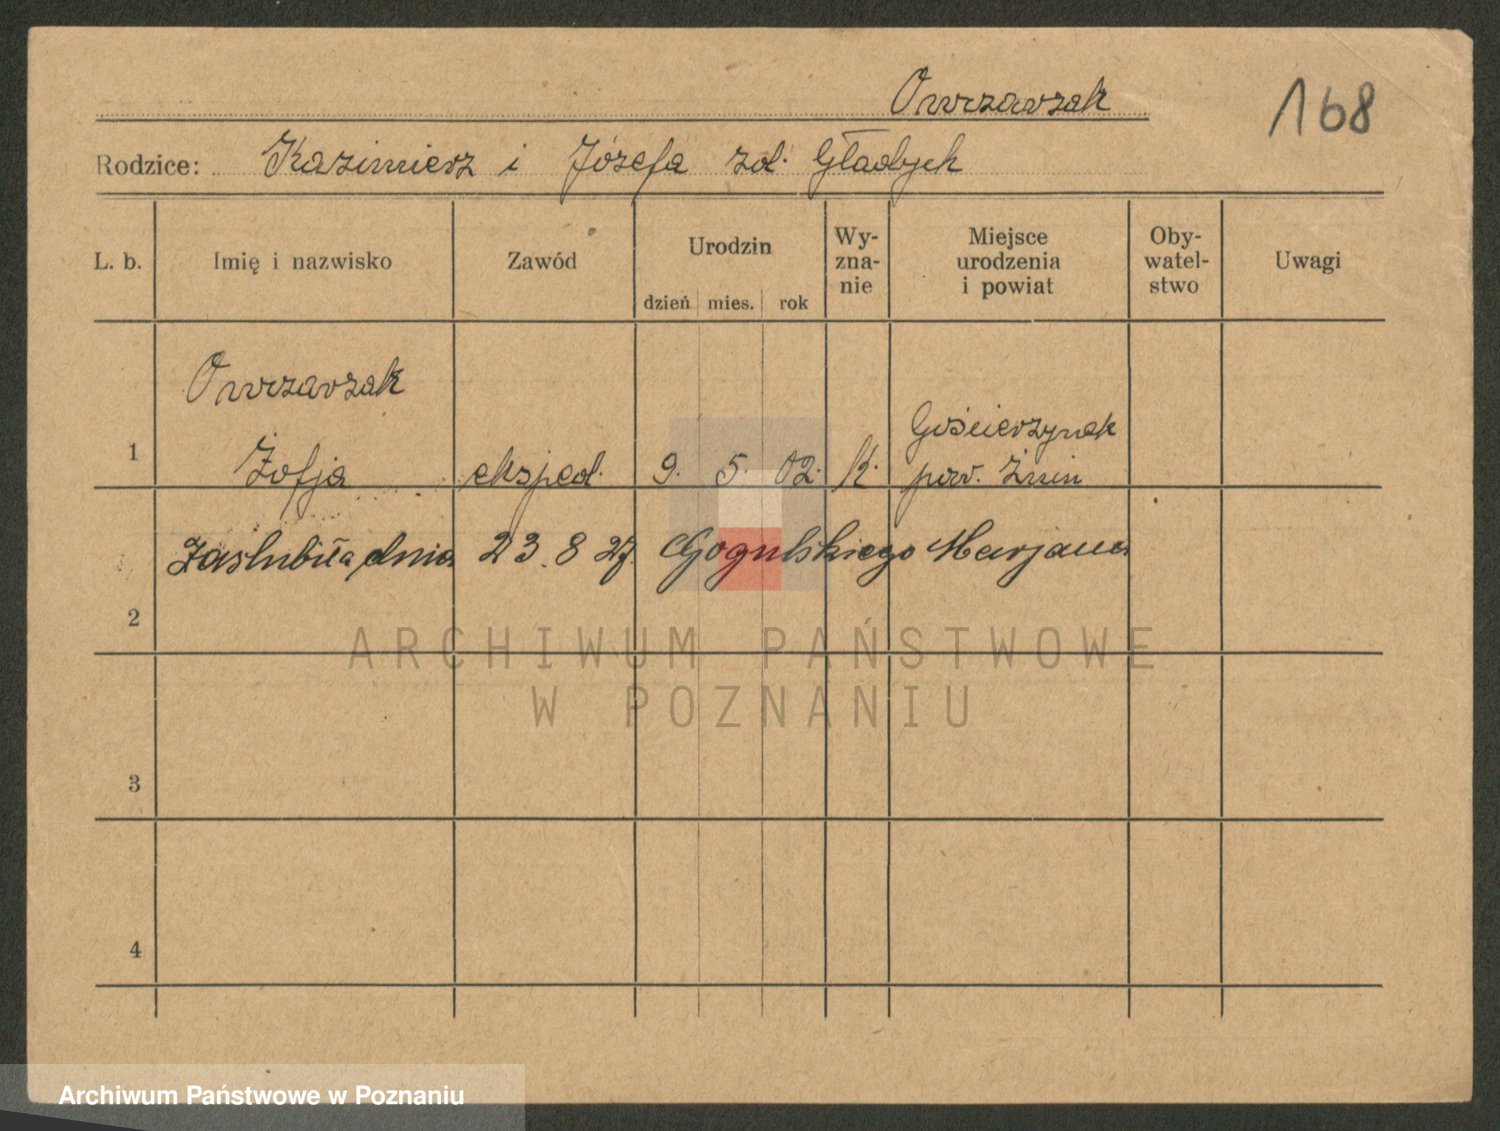 Owczarzak
168
Rodzice: Kazimierz i Józefa zd. Gładych
L. b.
Imię i nazwisko
Zawód
Urodzin
dzień mies. rok
Wy-
zna-
nie
Miejsce
urodzenia
i powiat
Oby-
watel-
stwo
Uwagi
Owczarzak
1 Zofja eksped. 9. 5. 02. K.
Gościerzynek
pow. Żnin
zaślubiła dnia 23.8 27. Gogulskiego Marjana
2
3
4
ARCHIWUM PAŃSTWOWE
W POZNANIU
Archiwum Państwowe w Poznaniu